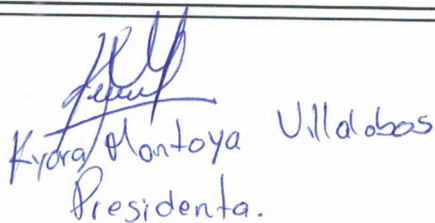 Kyara Montoya Villalobos
Presidenta.